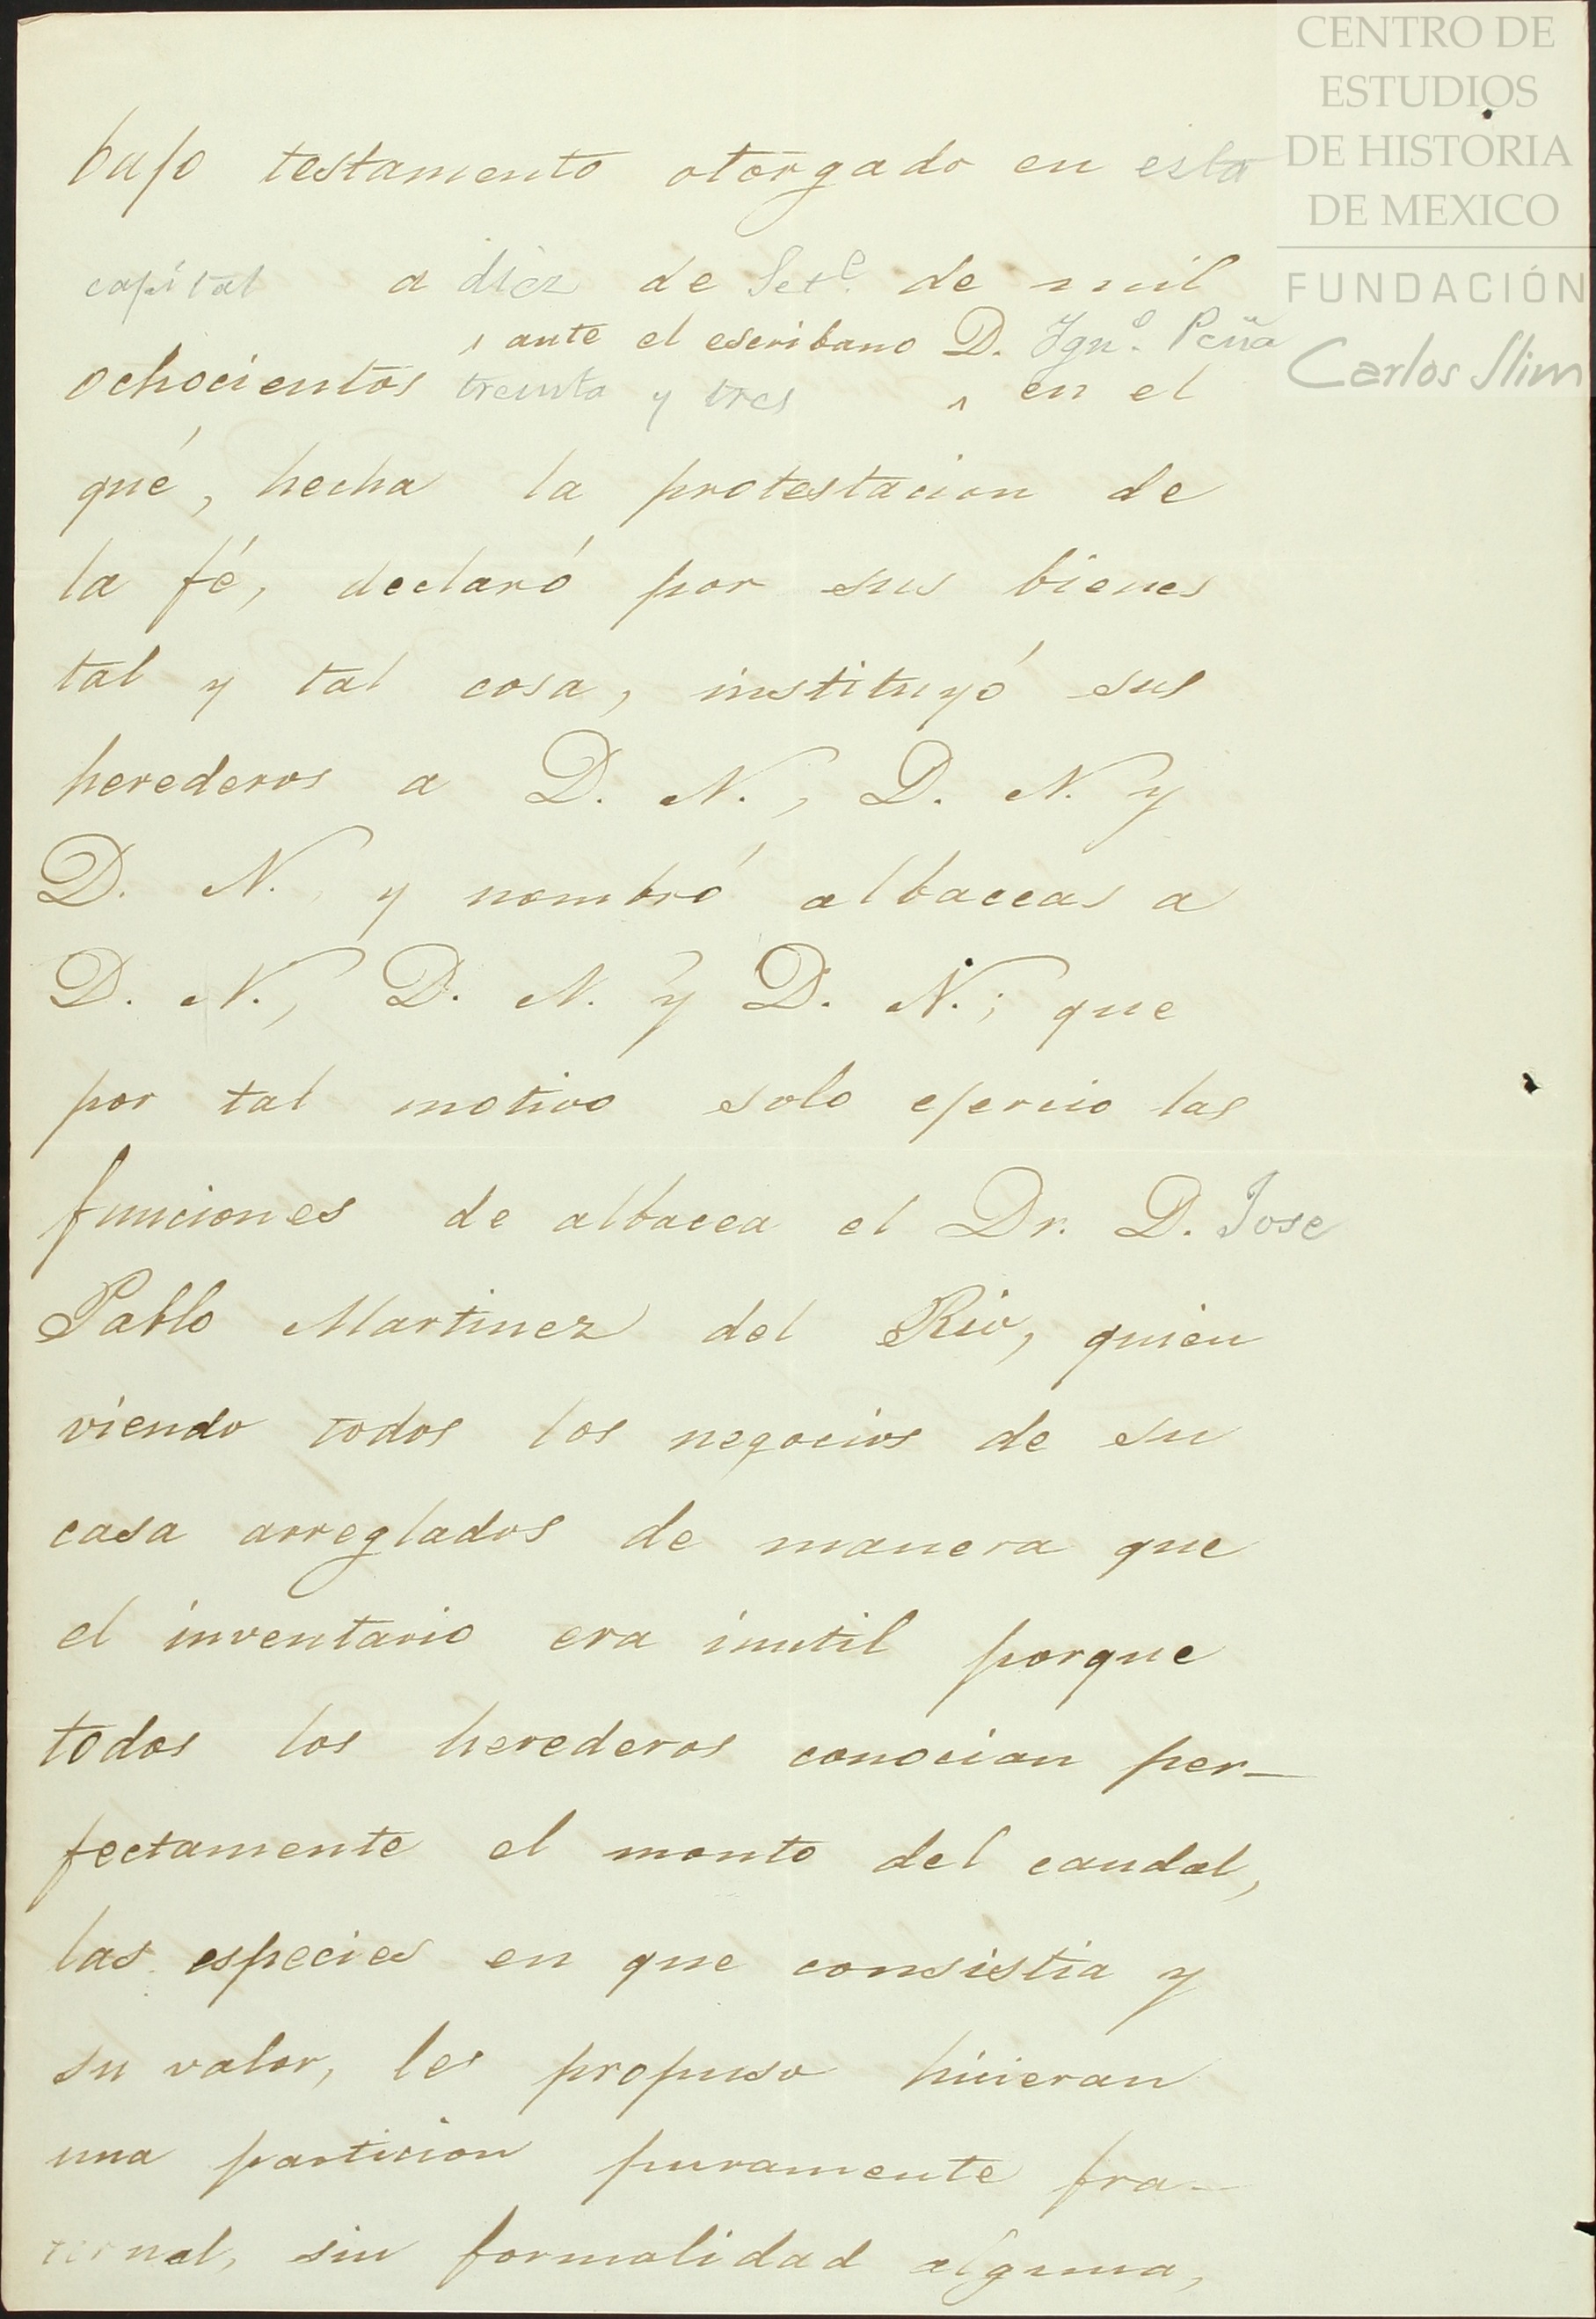 bajo testamento otorgado en esta
capital a diez de Set.e de mil
^ ante el escribano D. Ygn.o Peña
ochocientos treinta y tres ^ en el
qué, hecha la protestacion de
la fé, declaró por sus bienes
tal y tal cosa, instituyó sus
herederos a D. N., D. N. y
D. N. y nombró albaceas a
D. N., D. N. y D. N.; que
por tal motivo solo ejercio las
funciones de albacea el Dr. D. Jose
Pablo Martinez del Rio, quien
viendo todos los negocios de su
casa arreglados de manera que
el inventario era inutil porque
todos los herederos conocian per-
fectamente el monto del caudal,
las especies en que consistia y
su valor, les propuso hicieran
una particion puramente fra-
ternal, sin formalidad alguna,
CENTRO DE
ESTUDIOS
DE HISTORIA
DE MEXICO
FUNDACIÓN
Carlos Slim